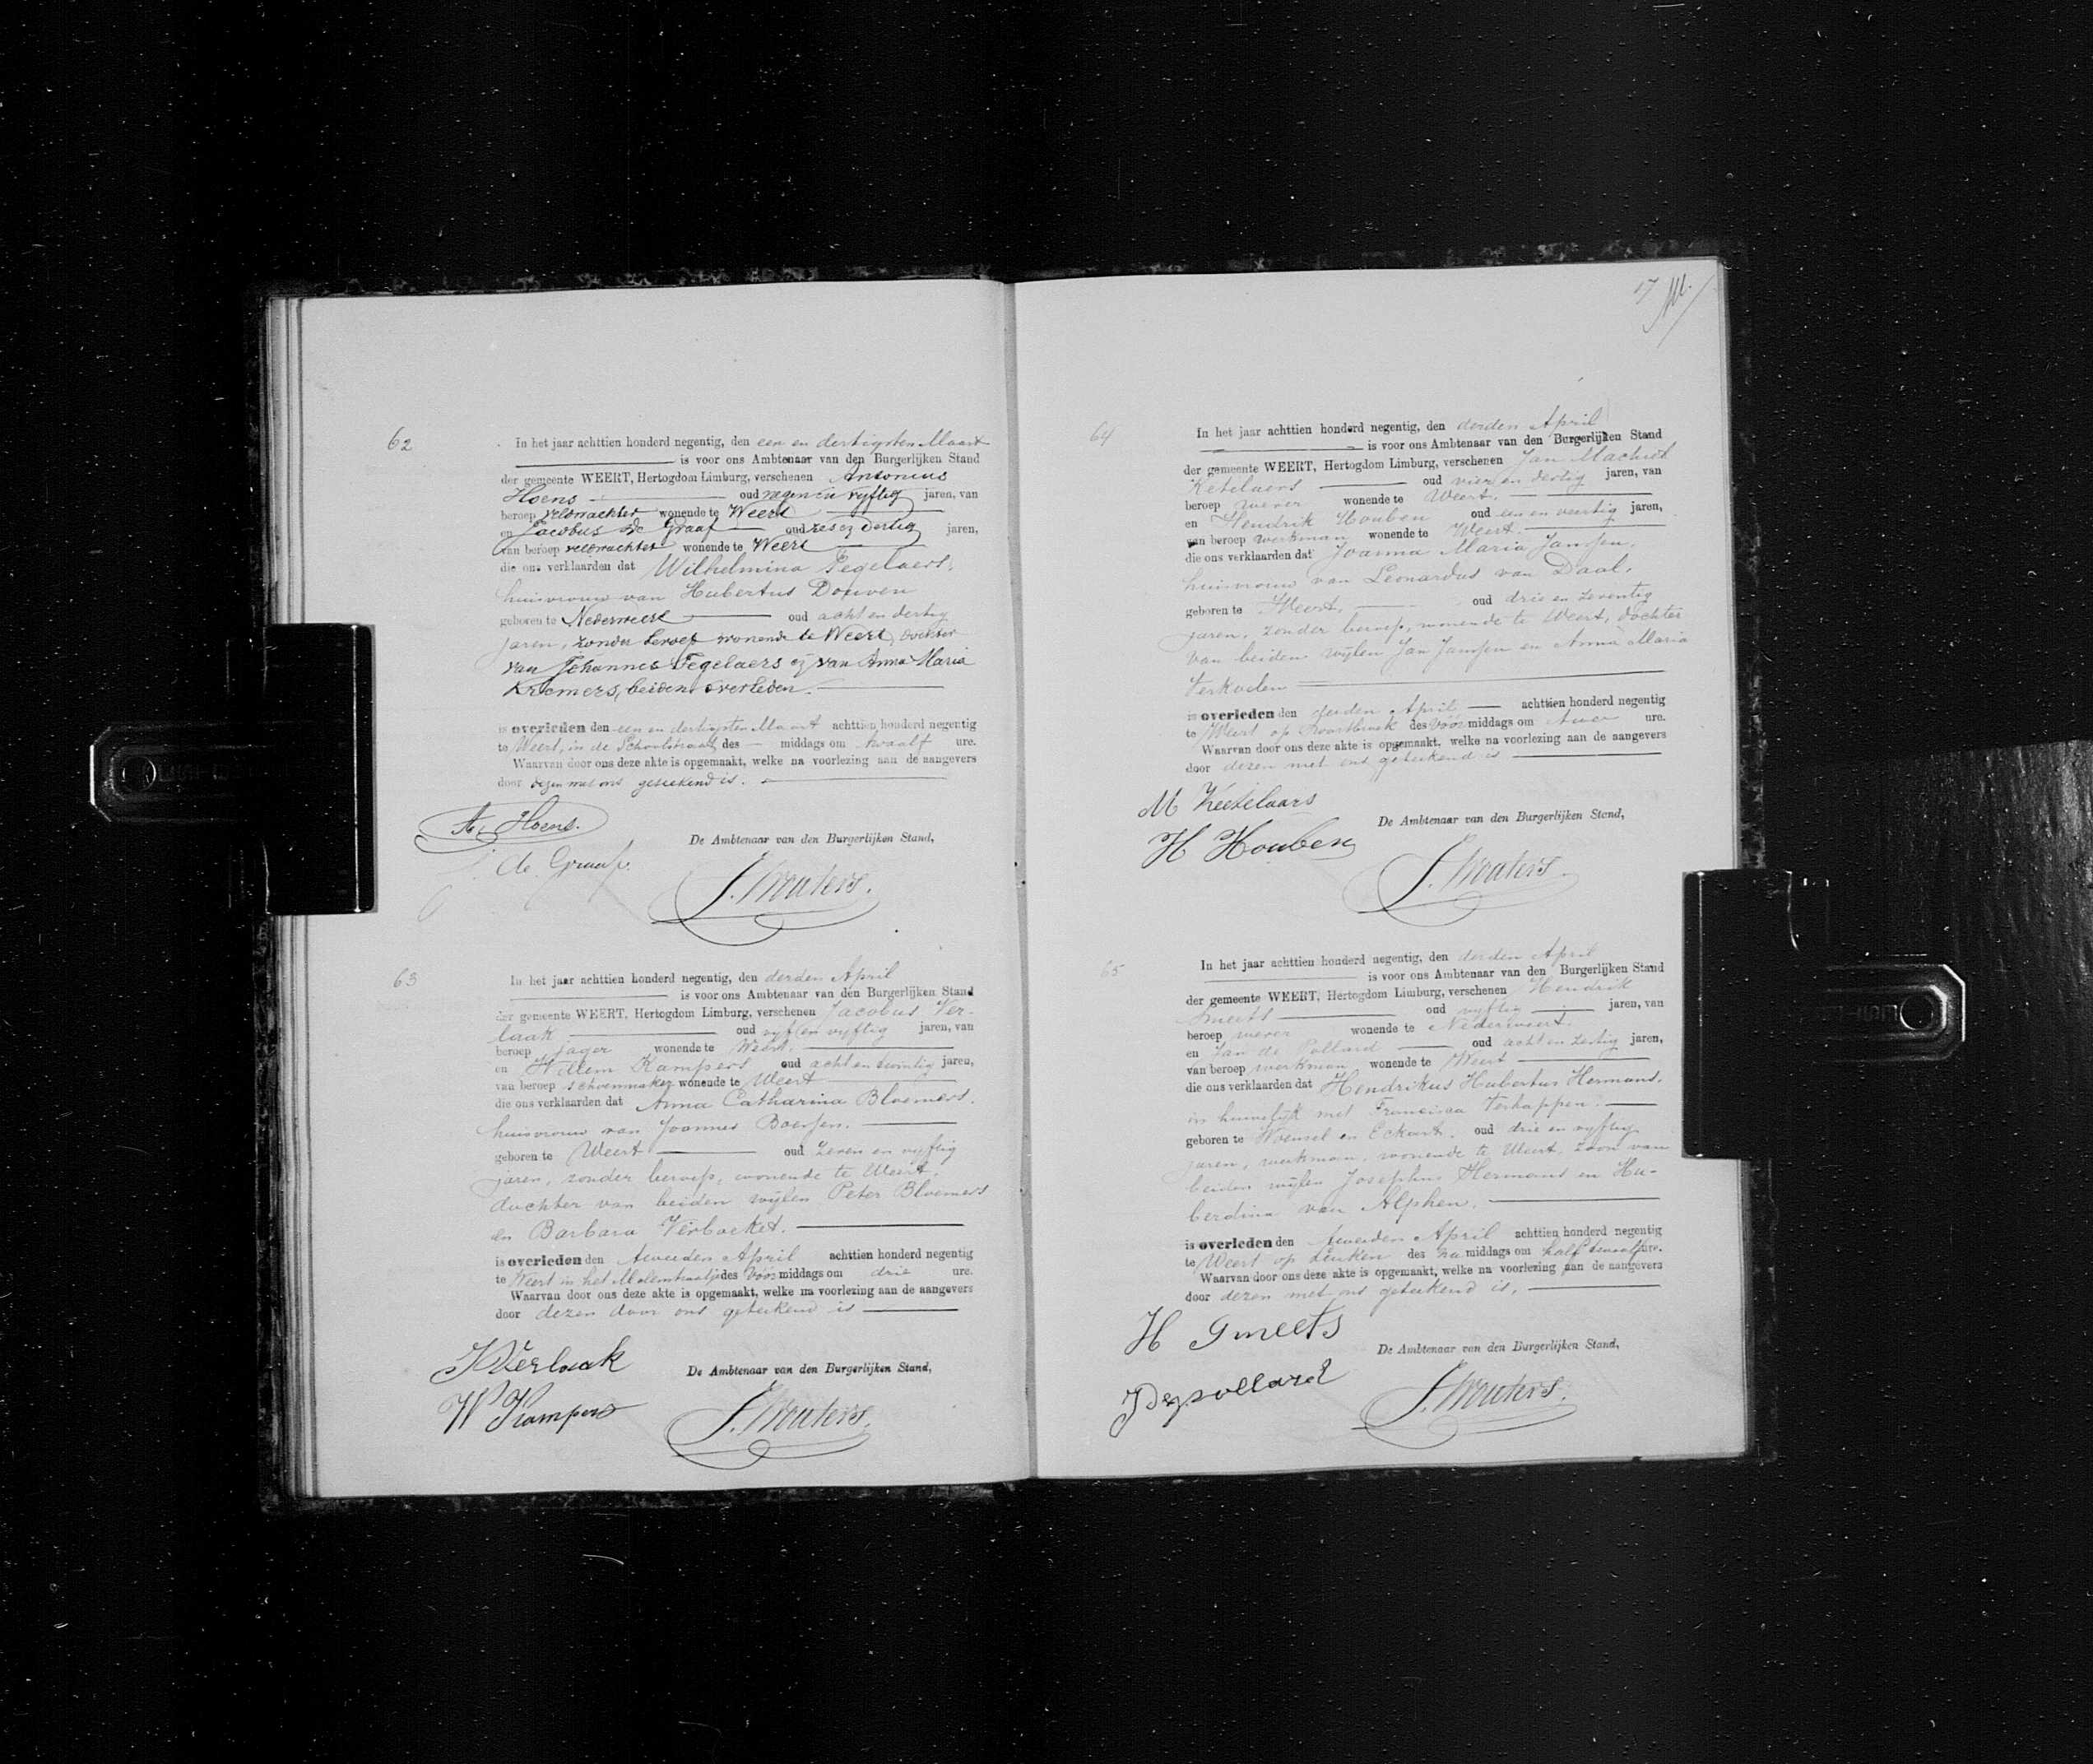 62
In het jaar achttien honderd negentig, den een en dertigsten Maart
is voor ons Ambtenaar van den Burgerlijken Stand
der gemeente WEERT, Hertogdom Limburg, verschenen Antonius
Hoens oud negen en vyftig jaren, van
beroep veldwachter wonende te Weert
en Jacobus de Graaf oud zes en dertig jaren,
van beroep veldwachter wonende te Weert
die ons verklaarden dat Wilhelmina Tegelaers,
huisvrouw van Hubertus Douven
geboren te Nederweert oud acht en dertig
jaren, zonder beroep wonende te Weert, dochter
van Johannes Tegelaers en van Anna Maria
Kremers, beiden overleden.
is overleden den een en dertigsten Maart achttien honderd negentig
te Weert, in de Schoolstraat des — middags om twaalf ure.
Waarvan door ons deze akte is opgemaakt, welke na voorlezing aan de aangevers
door dezen met ons geteekend is.
A. Hoens.
de Graaf.
De Ambtenaar van den Burgerlijken Stand,
J. Wouters.
63
In het jaar achttien honderd negentig, den derden April
is voor ons Ambtenaar van den Burgerlijken Stand
der gemeente WEERT, Hertogdom Limburg, verschenen Jacobus Ver-
laak oud vyf en vyftig jaren, van
beroep jager wonende te Weert.
en Willem Kampers oud acht en twintig jaren,
van beroep schoenmaker wonende te Weert
die ons verklaarden dat Anna Catharina Bloemers.
huisvrouw van Joannes
geboren te Weert oud zeven en vyftig
jaren, zonder beroep, wonende te Weert.
dochter van beiden wijlen Peter Bloemers
en Barbara Verboeket.
is overleden den tweeden April achttien honderd negentig
te Weert in het Molenstraatje des Voor middags om drie ure.
Waarvan door ons deze akte is opgemaakt, welke na voorlezing aan de aangevers
door dezen door ons geteekend is
J Verlaak
W Kampers
De Ambtenaar van den Burgerlijken Stand,
J. Wouters.
17
64
In het jaar achttien honderd negentig, den derden April
is voor ons Ambtenaar van den Burgerlijken Stand
der gemeente WEERT, Hertogdom Limburg, verschenen Jan Machiel
Ketelaers oud vier en dertig jaren, van
beroep wever wonende te Weert.
en Hendrik Houben oud een en veertig jaren,
van beroep werkman wonende te Weert.
die ons verklaarden dat Joanna Maria Janssen.
huisvrouw van Leonardus van Daal.
geboren te Weert, oud drie en zeventig
jaren, zonder beroep, wonende te Weert, dochter
van beiden wijlen Jan Janssen en Anna Maria
is overleden den derden April achttien honderd negentig
te Weert op des Voor middags om twee ure.
Waarvan door ons deze akte is opgemaakt, welke na voorlezing aan de aangevers
door dezen met ons geteekend is
M Ketelaars
H Houben
De Ambtenaar van den Burgerlijken Stand,
J. Wouters.
65
In het jaar achttien honderd negentig, den derden April
is voor ons Ambtenaar van den Burgerlijken Stand
der gemeente WEERT, Hertogdom Limburg, verschenen Hendrik
Smeets oud vyftig jaren, van
beroep wever wonende te Nederweert.
en Jan de Pollard oud acht en zestig jaren,
van beroep werkman wonende te Weert
die ons verklaarden dat Hendrikus Hubertus Hermans.
in huwelijk met Francisca Verhappen.
geboren te Woensel en Eckart. oud drie en vyftig
jaren, werkman, wonende te Weert, zoon van
beiden wijlen Josephus Hermans en Hu-
berdina van Alphen.
is overleden den tweeden April achttien honderd negentig
te Weert op Leuken des Na middags om half twaalf ure.
Waarvan door ons deze akte is opgemaakt, welke na voorlezing aan de aangevers
door dezen met ons geteekend is.
H Smeets
J Depollard
De Ambtenaar van den Burgerlijken Stand,
J. Wouters.